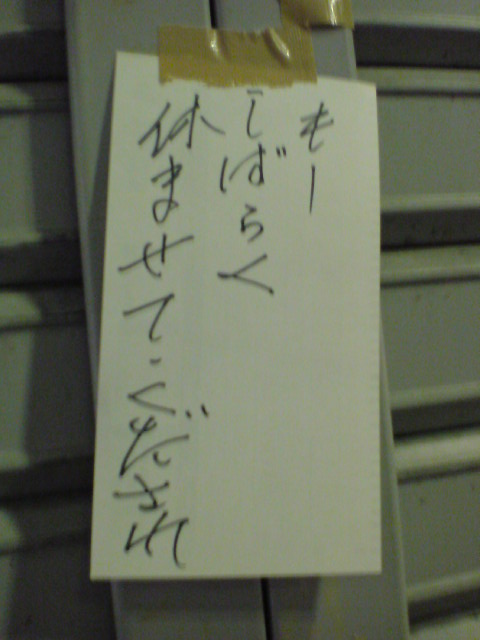 もー
しばらく
休ませてくだされ